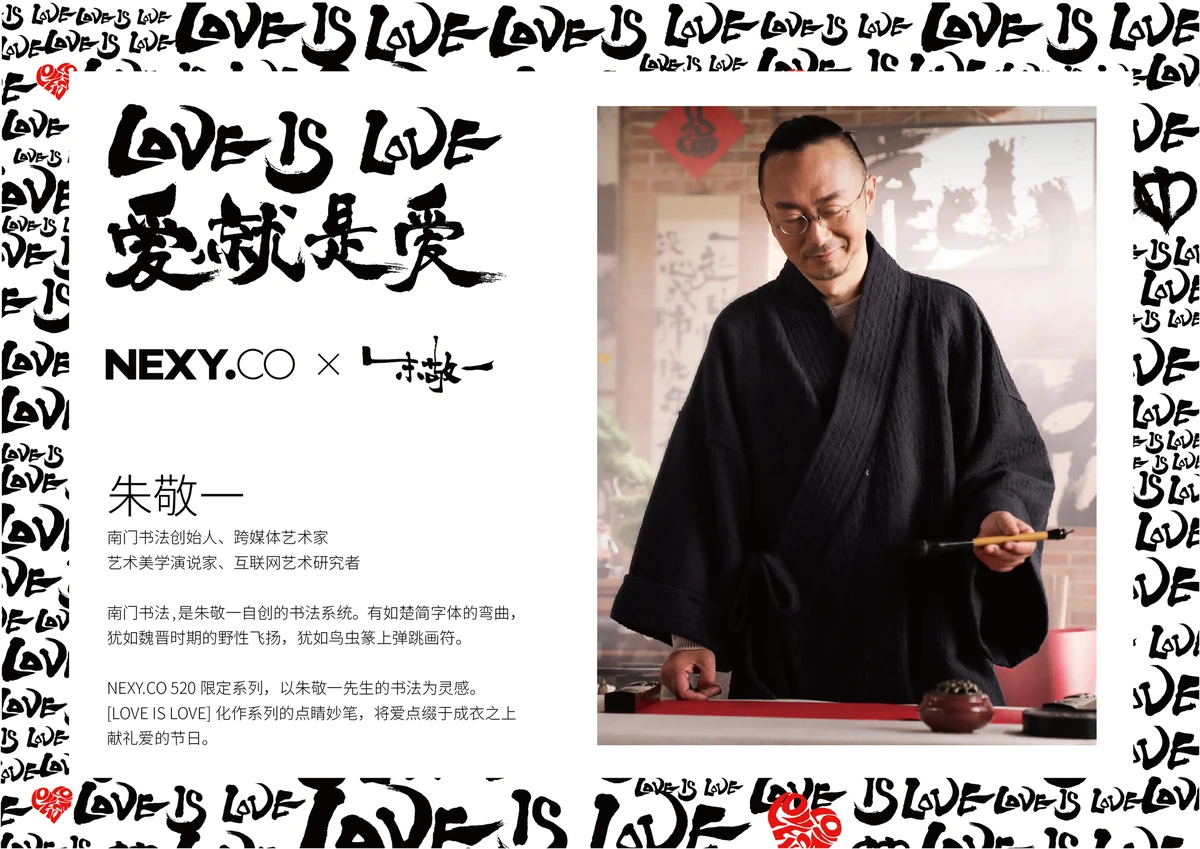 LOVE IS LOVE
爱就是爱
NEXY.CO × 朱敬一
朱敬一
南门书法创始人、跨媒体艺术家
艺术美学演说家、互联网艺术研究者
南门书法,是朱敬一自创的书法系统。有如楚简字体的弯曲，
犹如魏晋时期的野性飞扬，犹如鸟虫篆上弹跳画符。
NEXY.CO 520 限定系列，以朱敬一先生的书法为灵感。
[LOVE IS LOVE] 化作系列的点睛妙笔，将爱点缀于成衣之上
献礼爱的节日。